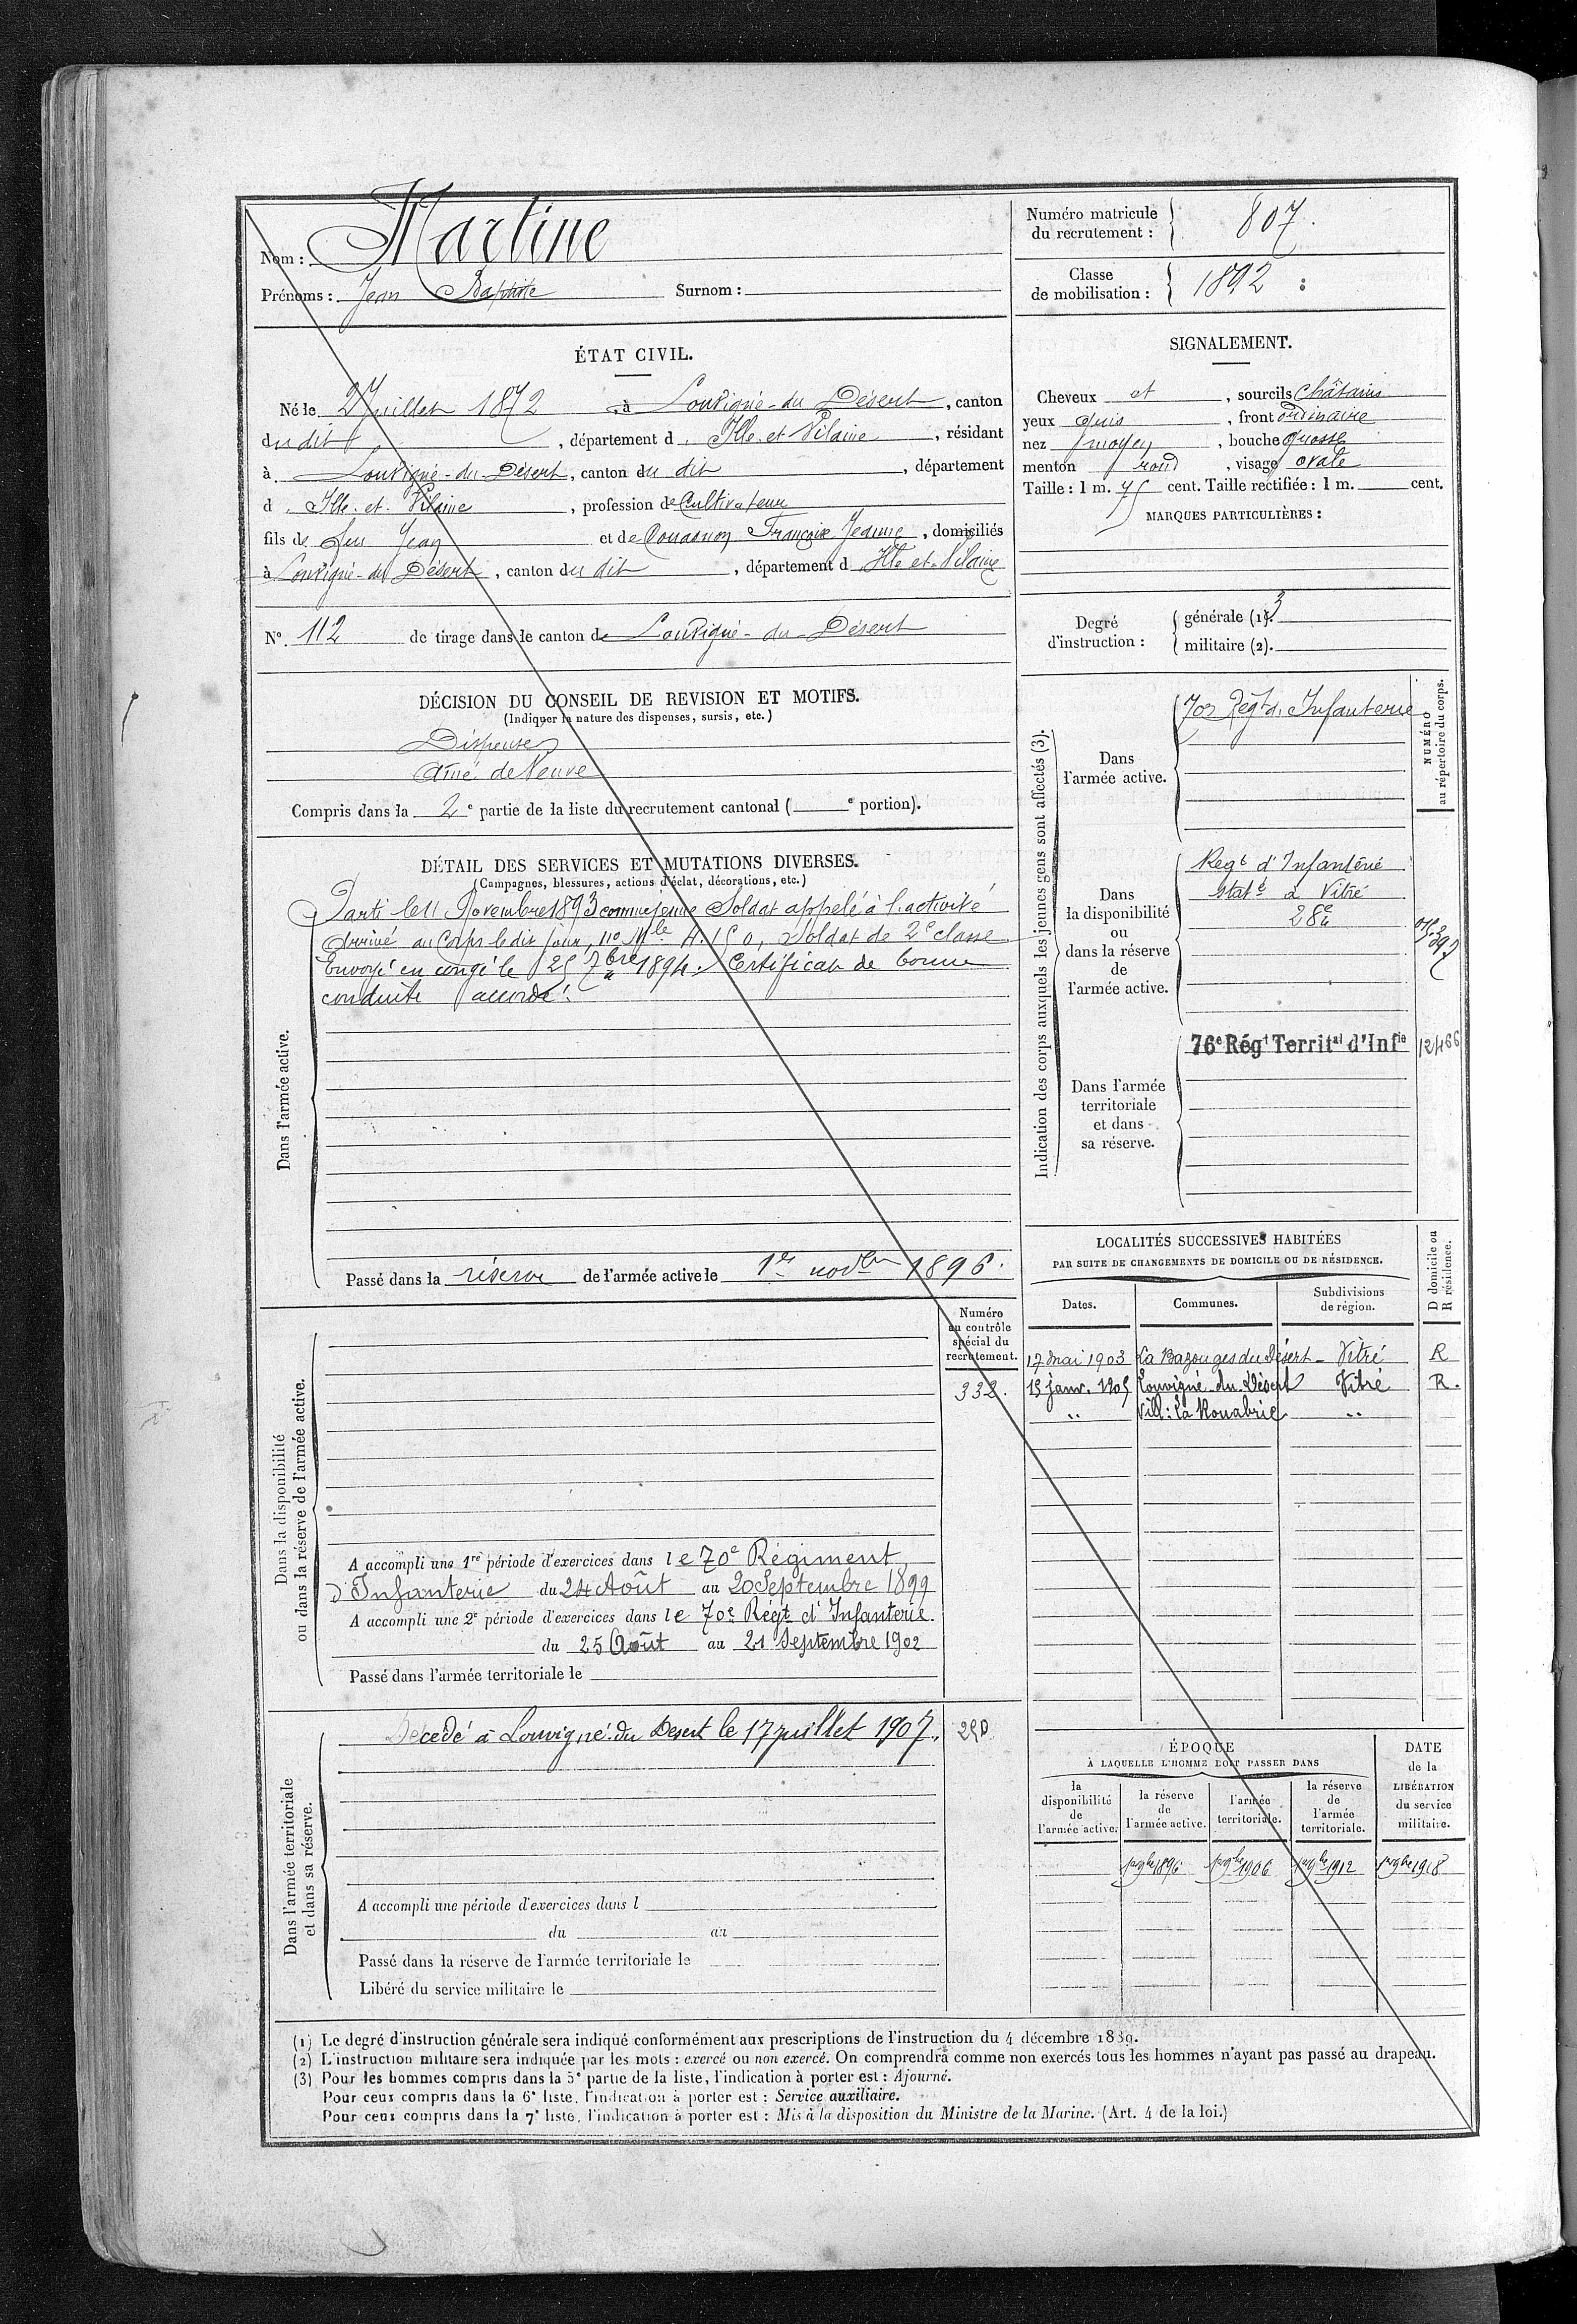 Nom : Martine
Prénoms : Jean Baptiste Surnom :
Numéro matricule du recrutement : 807.
Classe de mobilisation : 1892
ÉTAT CIVIL.
Né le 2 Juillet 1872, à Louvigné-du-Désert, canton
du dit, département d Ille et Vilaine, résidant
à Louvigné-du-Désert, canton du dit, département
d Ille et Vilaine, profession de Cultivateur
fils de feu Jean et de Couasnon Françoise Jeanne, domiciliés
à Louvigné-du-Désert, canton du dit, département d Ille et Vilaine
N° 112 de tirage dans le canton de Louvigné-du-Désert
SIGNALEMENT.
Cheveux et, sourcils châtains
yeux gris, front ordinaire
nez moyen, bouche grosse
menton rond, visage ovale
Taille : 1 m. 75 cent. Taille rectifiée : 1 m. cent.
MARQUES PARTICULIÈRES :
Degré d'instruction :
générale (1). 3
militaire (2).
DÉCISION DU CONSEIL DE REVISION ET MOTIFS.
(Indiquer la nature des dispenses, sursis, etc.)
Dispensé
Aîné de Veuve
Compris dans la 2e partie de la liste du recrutement cantonal ( e portion).
DÉTAIL DES SERVICES ET MUTATIONS DIVERSES.
(Campagnes, blessures, actions d'éclat, décorations, etc.)
Dans l'armée active.
Parti le 11 Novembre 1893 comme jeune Soldat appelé à l'activité
Arrivé au Corps le dit jour, n° Mle 4.150, Soldat de 2e classe
Envoyé en congé le 25 7bre 1894. Certificat de bonne
conduite accordé.
Passé dans la réserve de l'armée active le 1er novbre 1896.
Indication des corps auxquels les jeunes gens sont affectés (3).
NUMÉRO au répertoire du corps.
Dans l'armée active.
70e Régt d'Infanterie
Dans la disponibilité ou dans la réserve de l'armée active.
Regt d'Infanterie
statné à Vitré
284
Dans l'armée territoriale et dans sa réserve.
76e Régt Territal d'Infie
12466
LOCALITÉS SUCCESSIVES HABITÉES
PAR SUITE DE CHANGEMENTS DE DOMICILE OU DE RÉSIDENCE.
Dates. Communes. Subdivisions de région. D domicile ou R résidence.
17 mai 1903 La Bazouges du Désert - Vitré R
15 janv. 1905 Louvigné-du-Désert Vitré R.
" Vill: la Rouabrie "
Dans la disponibilité ou dans la réserve de l'armée active.
Numéro au contrôle spécial du recrutement.
332.
A accompli une 1re période d'exercices dans le 70e Régiment
d'Infanterie du 24 Août au 20 Septembre 1899
A accompli une 2e période d'exercices dans le 70e Régt d'Infanterie.
du 25 Août au 21 Septembre 1902
Passé dans l'armée territoriale le
Dans l'armée territoriale et dans sa réserve.
Décédé à Louvigné-du-Désert le 17 juillet 1907.
A accompli une période d'exercices dans l
du au
Passé dans la réserve de l'armée territoriale le
Libéré du service militaire le
ÉPOQUE
À LAQUELLE L'HOMME DOIT PASSER DANS
la disponibilité de l'armée active. la réserve de l'armée active. l'armée territoriale. la réserve de l'armée territoriale. DATE de la LIBÉRATION du service militaire.
1er 9bre 1896 1er 9bre 1906 1er 9bre 1912 1er 9bre 1918
(1) Le degré d'instruction générale sera indiqué conformément aux prescriptions de l'instruction du 4 décembre 1889.
(2) L'instruction militaire sera indiquée par les mots : exercé ou non exercé. On comprendra comme non exercés tous les hommes n'ayant pas passé au drapeau.
(3) Pour les hommes compris dans la 5e partie de la liste, l'indication à porter est : Ajourné.
Pour ceux compris dans la 6e liste, l'indication à porter est : Service auxiliaire.
Pour ceux compris dans la 7e liste, l'indication à porter est : Mis à la disposition du Ministre de la Marine. (Art. 4 de la loi.)